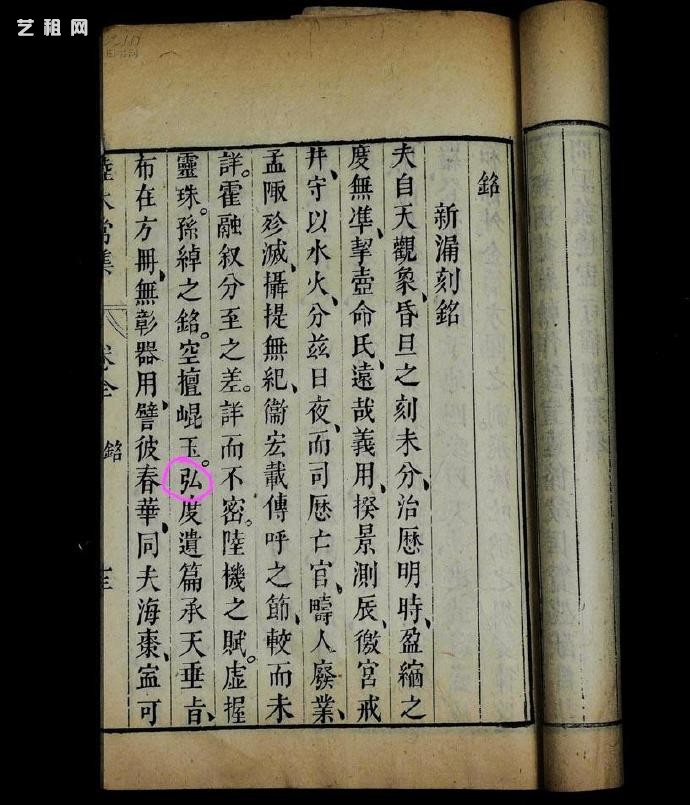 銘
新漏刻銘
夫自天觀象、昏旦之刻未分、治厯明時、盈縮之
度無凖、挈壺命氏、遠哉義用、揆景測辰、徼宮戒
井、守以水火、分茲日夜、而司厯亡官、疇人廢業、
孟陬殄滅、攝提無紀、衞宏載傳呼之節、較而未
詳。霍融叙分至之差。詳而不密。陸機之賦。虛握
靈珠。孫綽之銘。空擅崐玉。弘度遺篇承天垂旨、
布在方冊、無彰器用、譬彼春華、同夫海棗、寍可
陸太常集 卷全 銘
艺租网